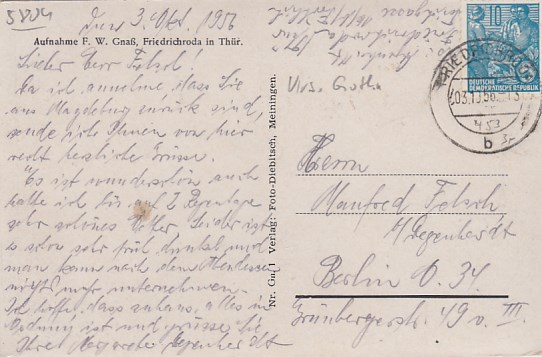 5804
3. Okt. 1956
Aufnahme F. W. Gnaß, Friedrichroda in Thür.
Lieber Herr Fetsch!
Da ich annehme, dass Sie
aus Magdeburg zurück sind,
sende ich Ihnen von hier
recht herzliche Grüsse.
Es ist wunderschön auch
hatte ich bis auf 2 Regentage
sehr schönes Wetter. Leider ist
es schon sehr früh dunkel und
man kann nach dem Abendessen
nichts mehr unternehmen.
Ich hoffe, dass zuhaus alles in
Ordnung ist und grüsse Sie
Ihre Margarete Degenhardt
Nr. Gn. 1 Verlag: Foto-Diebitsch, Meiningen.
Krs. Gotha
10
DEUTSCHE
DEMOKRATISCHE REPUBLIK
03.10.56
b
Herrn
Manfred Fetsch
b/Degenhardt
Berlin O. 34.
Grünbergerstr. 49 v. III.